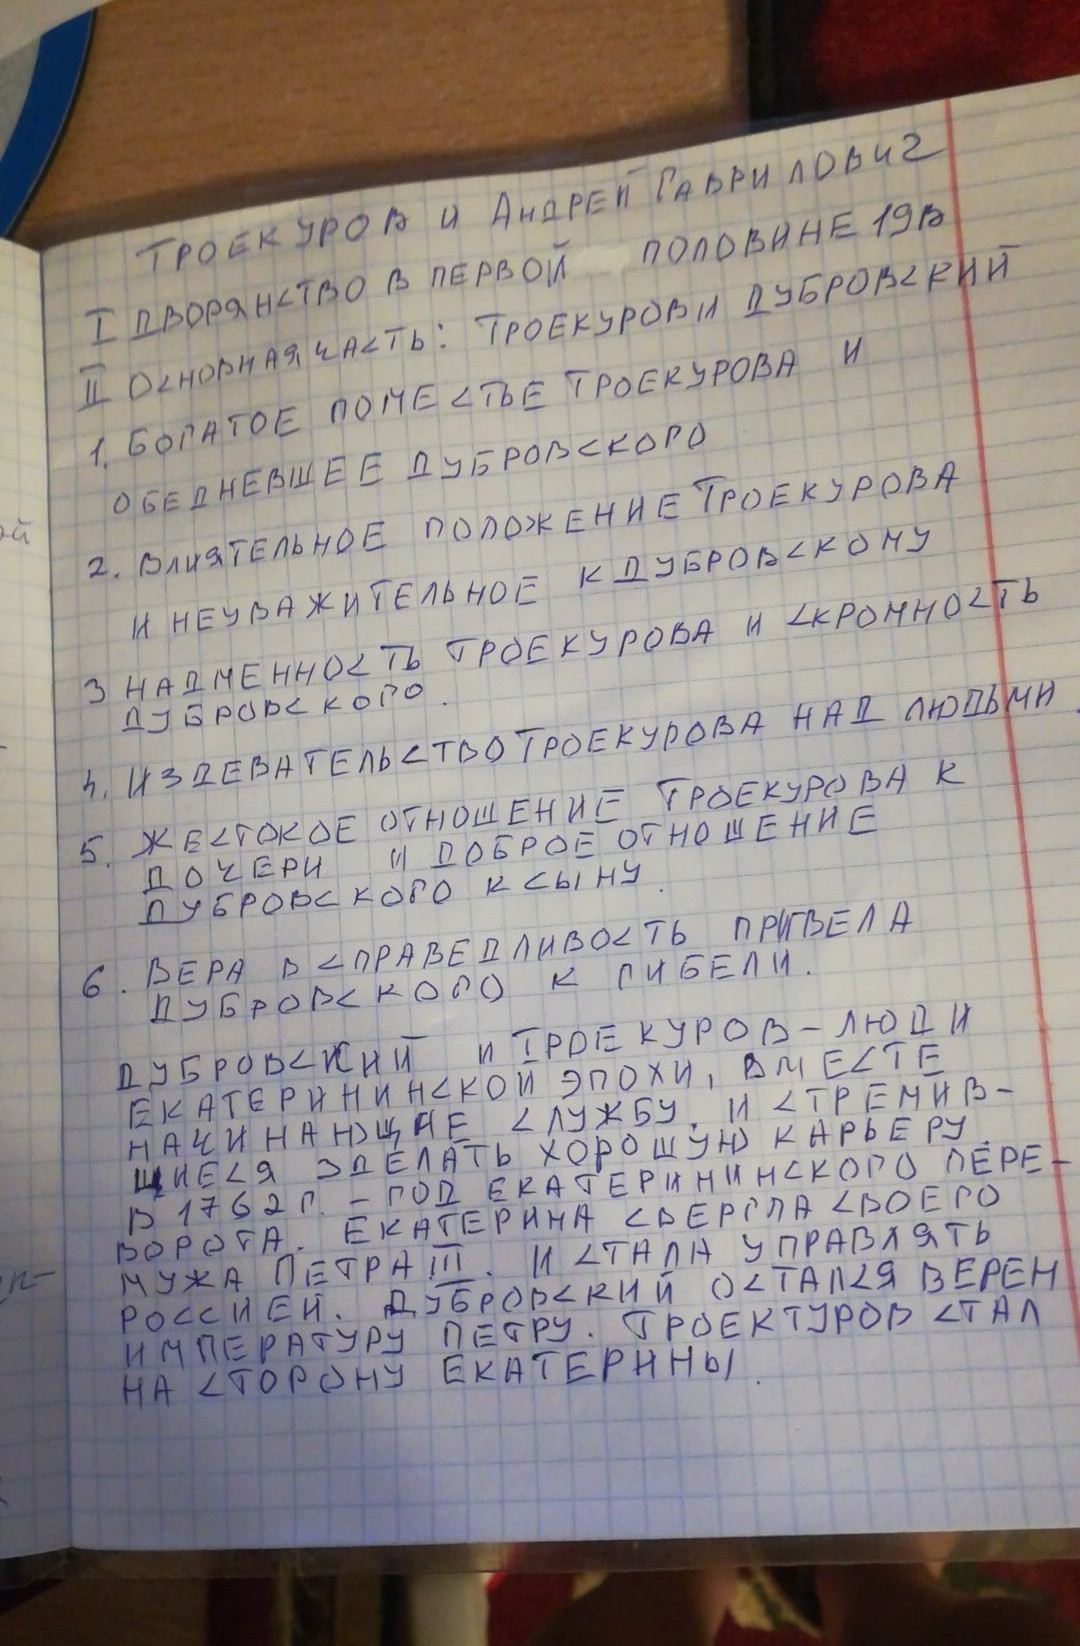 ТРОЕКУРОВ И АНДРЕЙ ГАВРИЛОВИЧ
I ДВОРЯНСТВО В ПЕРВОЙ ПОЛОВИНЕ 19В
II ОСНОВНАЯ ЧАСТЬ: ТРОЕКУРОВ И ДУБРОВСКИЙ
1. БОГАТОЕ ПОМЕСТЬЕ ТРОЕКУРОВА И
ОБЕДНЕВШЕЕ ДУБРОВСКОГО
2. ВЛИЯТЕЛЬНОЕ ПОЛОЖЕНИЕ ТРОЕКУРОВА
И НЕУВАЖИТЕЛЬНОЕ К ДУБРОВСКОМУ
3 НАДМЕННОСТЬ ТРОЕКУРОВА И СКРОМНОСТЬ
ДУБРОВСКОГО.
4. ИЗДЕВАТЕЛЬСТВО ТРОЕКУРОВА НАД ЛЮДЬМИ.
5. ЖЕСТОКОЕ ОТНОШЕНИЕ ТРОЕКУРОВА К
ДОЧЕРИ И ДОБРОЕ ОТНОШЕНИЕ
ДУБРОВСКОГО К СЫНУ.
6. ВЕРА В СПРАВЕДЛИВОСТЬ ПРИВЕЛА
ДУБРОВСКОГО К ГИБЕЛИ.
ДУБРОВСКИЙ И ТРОЕКУРОВ - ЛЮДИ
ЕКАТЕРИНИНСКОЙ ЭПОХИ, ВМЕСТЕ
НАЧИНАЮЩИЕ СЛУЖБУ. И СТРЕМИВ-
ШИЕСЯ ЗДЕЛАТЬ ХОРОШУЮ КАРЬЕРУ.
В 1762 Г. - ГОД ЕКАТЕРИНИНСКОГО ПЕРЕ-
ВОРОТА. ЕКАТЕРИНА СВЕРГЛА СВОЕГО
МУЖА ПЕТРА III. И СТАЛА УПРАВЛЯТЬ
РОССИЕЙ. ДУБРОВСКИЙ ОСТАЛСЯ ВЕРЕН
ИМПЕРАТУРУ ПЕТРУ. ТРОЕКТУРОВ СТАЛ
НА СТОРОНУ ЕКАТЕРИНЫ.